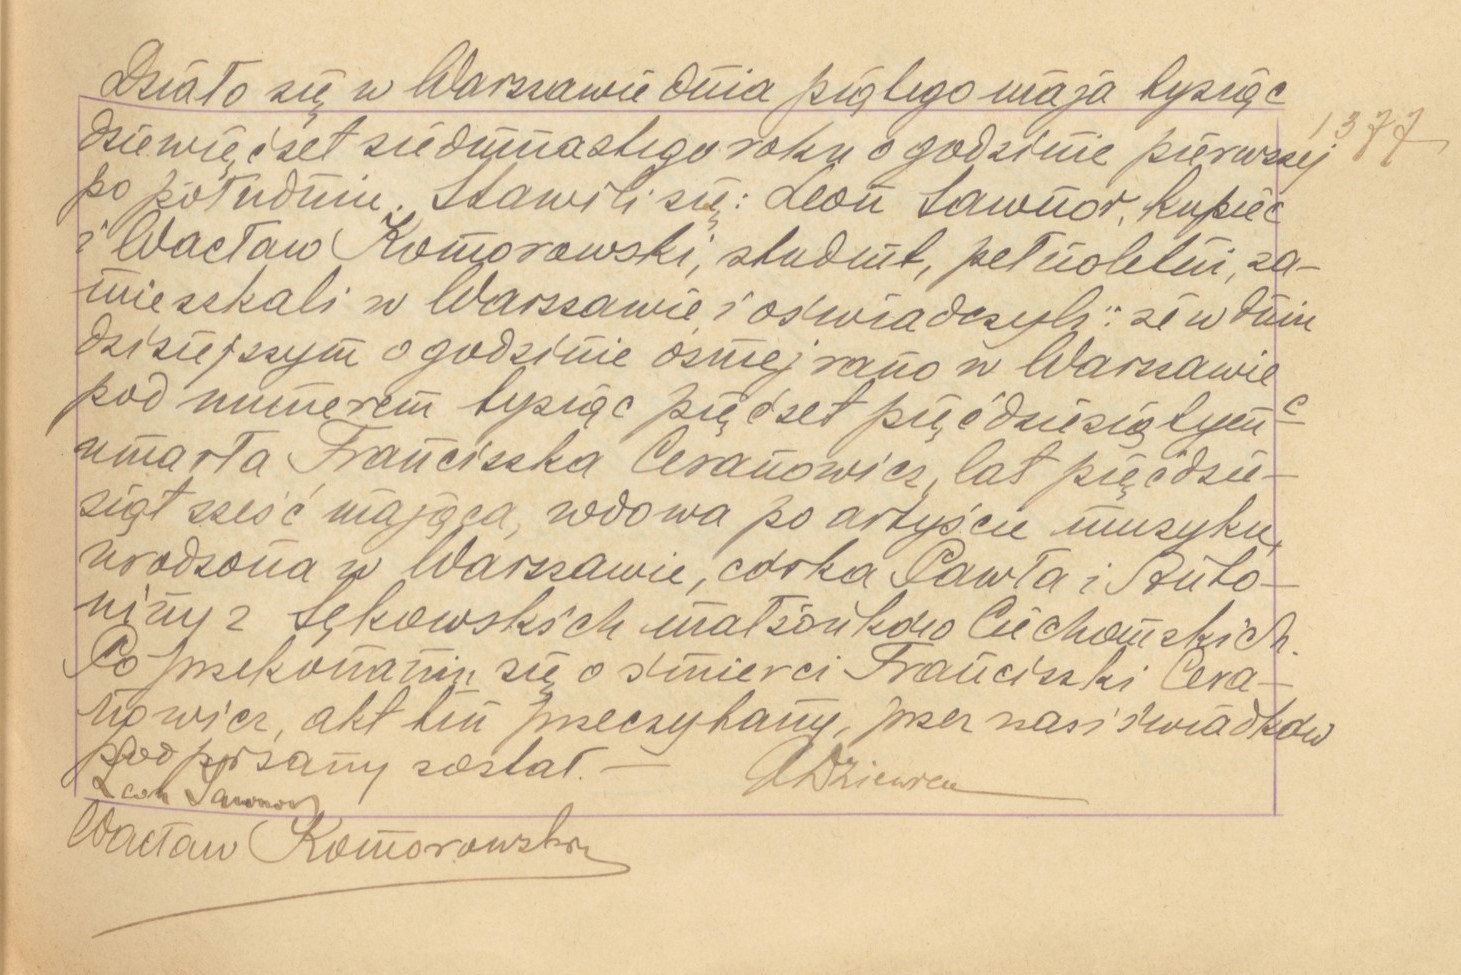 Działo się w Warszawie dnia piątego maja tysiąc
dziewięćset siedmnastego roku o godzinie pierwszej
1377
po południu. Stawili się: Leon Ławnor, kupiec
i Wacław Komorowski, student, pełnoletni, za-
mieszkali w Warszawie i oświadczyli: że w dniu
dzisiejszym o godzinie ósmej rano w Warszawie
pod numerem tysiąc pięćset pięćdziesiątym c
umarła Franciszka Ceranowicz, lat pięćdzie-
siąt sześć mająca, wdowa po artyście muzyku,
urodzona w Warszawie, córka Pawła i Anto-
niny z Łękowskich małżonków Ciechomskich.
Po przekonaniu się o śmierci Franciszki Cera-
nowicz, akt ten przeczytany, przez nas i świadków
podpisany został. —
Leon Ławnor
Wacław Komorowski